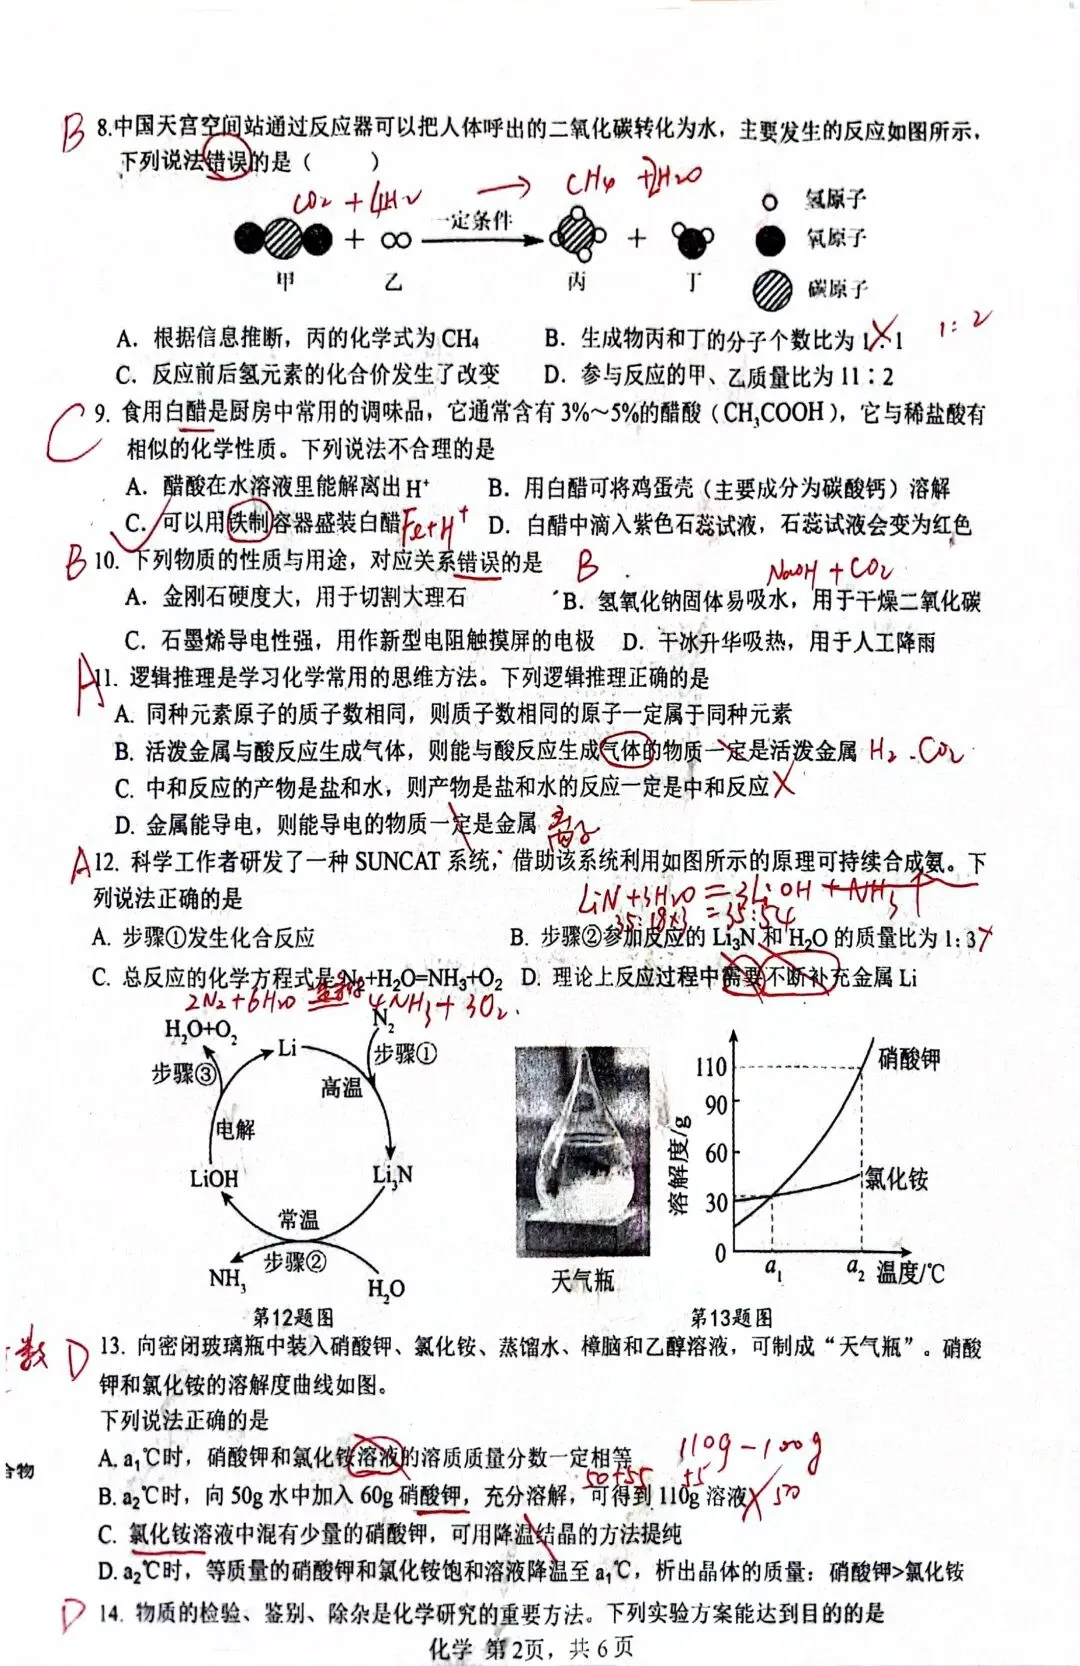 B 8.中国天宫空间站通过反应器可以把人体呼出的二氧化碳转化为水，主要发生的反应如图所示，
下列说法错误的是（　　）
CO₂ + 4H₂ → CH₄ + 2H₂O
氢原子
一定条件
+ + 氧原子
甲 乙 丙 丁
碳原子
A. 根据信息推断，丙的化学式为 CH₄ B. 生成物丙和丁的分子个数比为 1：1 1:2
C. 反应前后氢元素的化合价发生了改变 D. 参与反应的甲、乙质量比为 11：2
C 9. 食用白醋是厨房中常用的调味品，它通常含有 3%～5%的醋酸（CH₃COOH），它与稀盐酸有
相似的化学性质。下列说法不合理的是
A. 醋酸在水溶液里能解离出 H⁺ B. 用白醋可将鸡蛋壳（主要成分为碳酸钙）溶解
C. 可以用铁制容器盛装白醋 Fe+H⁺ D. 白醋中滴入紫色石蕊试液，石蕊试液会变为红色
B 10. 下列物质的性质与用途，对应关系错误的是 B NaOH + CO₂
A. 金刚石硬度大，用于切割大理石 B. 氢氧化钠固体易吸水，用于干燥二氧化碳
C. 石墨烯导电性强，用作新型电阻触摸屏的电极 D. 干冰升华吸热，用于人工降雨
A 11. 逻辑推理是学习化学常用的思维方法。下列逻辑推理正确的是
A. 同种元素原子的质子数相同，则质子数相同的原子一定属于同种元素
B. 活泼金属与酸反应生成气体，则能与酸反应生成气体的物质一定是活泼金属 H₂ . CO₂
C. 中和反应的产物是盐和水，则产物是盐和水的反应一定是中和反应 ×
D. 金属能导电，则能导电的物质一定是金属 离子
A 12. 科学工作者研发了一种 SUNCAT 系统，借助该系统利用如图所示的原理可持续合成氨。下
列说法正确的是 LiN+3H₂O = 3LiOH + NH₃↑
35:18×3 = 35:54
A. 步骤①发生化合反应 B. 步骤②参加反应的 Li₃N 和 H₂O 的质量比为 1:3 ×
C. 总反应的化学方程式是 N₂+H₂O=NH₃+O₂ D. 理论上反应过程中需要不断补充金属 Li
2N₂+6H₂O 4NH₃+3O₂.
H₂O+O₂ Li N₂
步骤③ 步骤①
高温
电解
LiOH Li₃N
常温
步骤②
NH₃ H₂O
第12题图
天气瓶
溶解度/g
110 硝酸钾
90
60
氯化铵
30
0
a₁ a₂ 温度/℃
第13题图
数 D 13. 向密闭玻璃瓶中装入硝酸钾、氯化铵、蒸馏水、樟脑和乙醇溶液，可制成“天气瓶”。硝酸
钾和氯化铵的溶解度曲线如图。
下列说法正确的是
A. a₁℃时，硝酸钾和氯化铵溶液的溶质质量分数一定相等 110g－100g
合物
50+55 55
B. a₂℃时，向 50g 水中加入 60g 硝酸钾，充分溶解，可得到 110g 溶液 × 50
C. 氯化铵溶液中混有少量的硝酸钾，可用降温结晶的方法提纯
D. a₂℃时，等质量的硝酸钾和氯化铵饱和溶液降温至 a₁℃，析出晶体的质量：硝酸钾>氯化铵
D 14. 物质的检验、鉴别、除杂是化学研究的重要方法。下列实验方案能达到目的的是
化学 第 2页，共 6 页